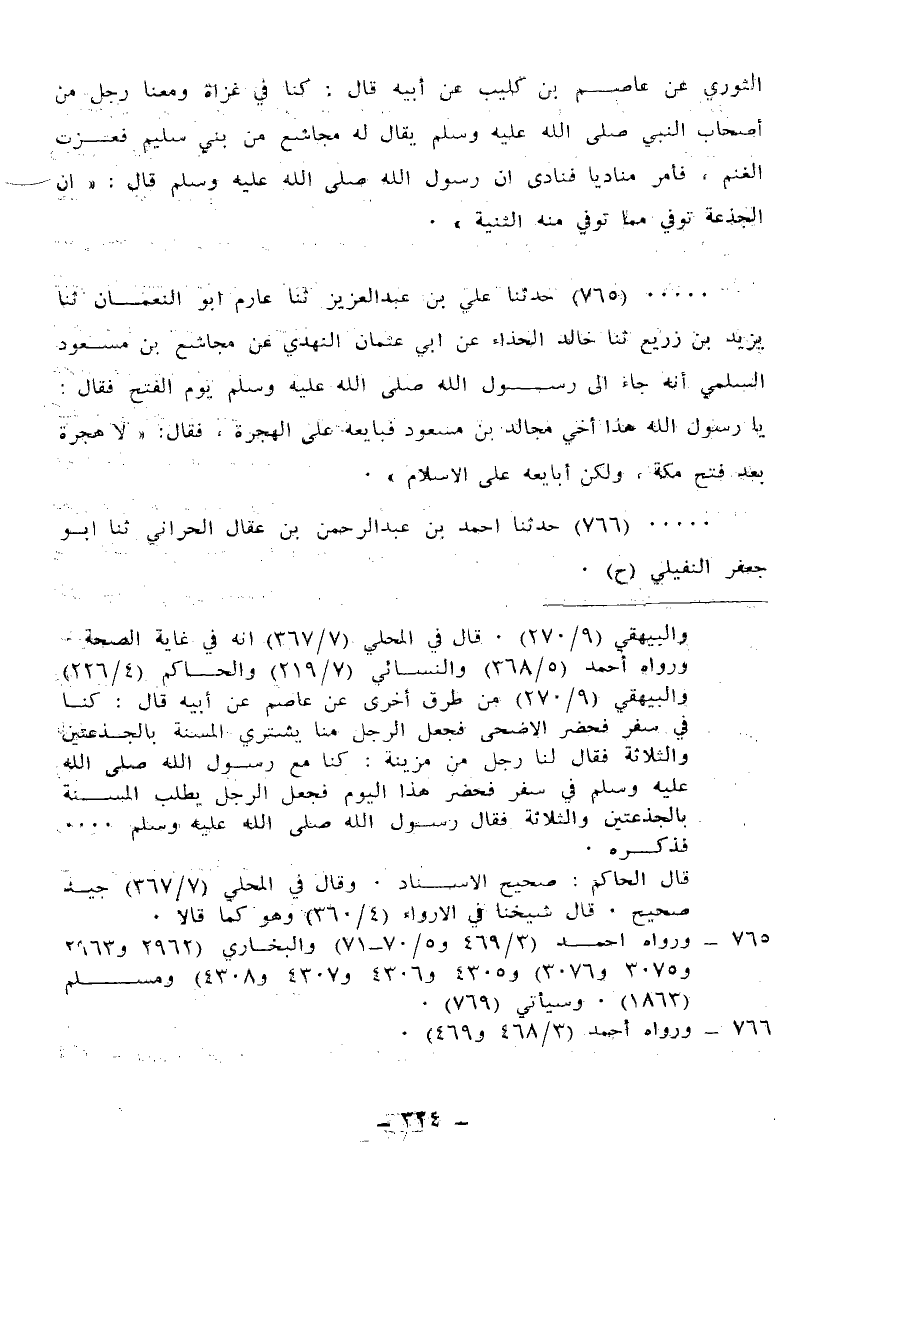 الثوري عن عاصم بن كليب عن أبيه قال : كنا في غزاة ومعنا رجل من
أصحاب النبي صلى الله عليه وسلم يقال له مجاشع من بني سليم فعزت
الغنم ، فأمر مناديا فنادى ان رسول الله صلى الله عليه وسلم قال : « ان
الجذعة توفي مما توفي منه الثنية » ٠
٠٠٠٠٠ (٧٦٥) حدثنا علي بن عبدالعزيز ثنا عارم ابو النعمان ثنا
يزيد بن زريع ثنا خالد الحذاء عن ابي عثمان النهدي عن مجاشع بن مسعود
السلمي أنه جاء الى رسول الله صلى الله عليه وسلم يوم الفتح فقال :
يا رسول الله هذا أخي مجالد بن مسعود فبايعه على الهجرة ، فقال: « لا هجرة
بعد فتح مكة ، ولكن أبايعه على الاسلام » ٠
٠٠٠٠٠ (٧٦٦) حدثنا احمد بن عبدالرحمن بن عقال الحراني ثنا ابو
جعفر النفيلي (ح) ٠
والبيهقي (٢٧٠/٩) ٠ قال في المحلي (٣٦٧/٧) انه في غاية الصحة ٠
ورواه أحمد (٣٦٨/٥) والنسائي (٢١٩/٧) والحاكم (٢٢٦/٤)
والبيهقي (٢٧٠/٩) من طرق أخرى عن عاصم عن أبيه قال : كنا
في سفر فحضر الاضحى فجعل الرجل منا يشتري المسنة بالجذعتين
والثلاثة فقال لنا رجل من مزينة : كنا مع رسول الله صلى الله
عليه وسلم في سفر فحضر هذا اليوم فجعل الرجل يطلب المسنة
بالجذعتين والثلاثة فقال رسول الله صلى الله عليه وسلم ٠٠٠٠
فذكره ٠
قال الحاكم : صحيح الاسناد ٠ وقال في المحلي (٣٦٧/٧) جيد
صحيح ٠ قال شيخنا في الارواء (٣٦٠/٤) وهو كما قالا ٠
٧٦٥ ـ ورواه احمد (٤٦٩/٣ و٧٠/٥ـ٧١) والبخاري (٢٩٦٢ و٢٩٦٣
و٣٠٧٥ و٣٠٧٦) و٤٣٠٥ و٤٣٠٦ و٤٣٠٧ و٤٣٠٨) ومسلم
(١٨٦٣) ٠ وسيأتي (٧٦٩) ٠
٧٦٦ ـ ورواه أحمد (٤٦٨/٣ و٤٦٩) ٠
ـ ٣٢٤ ـ